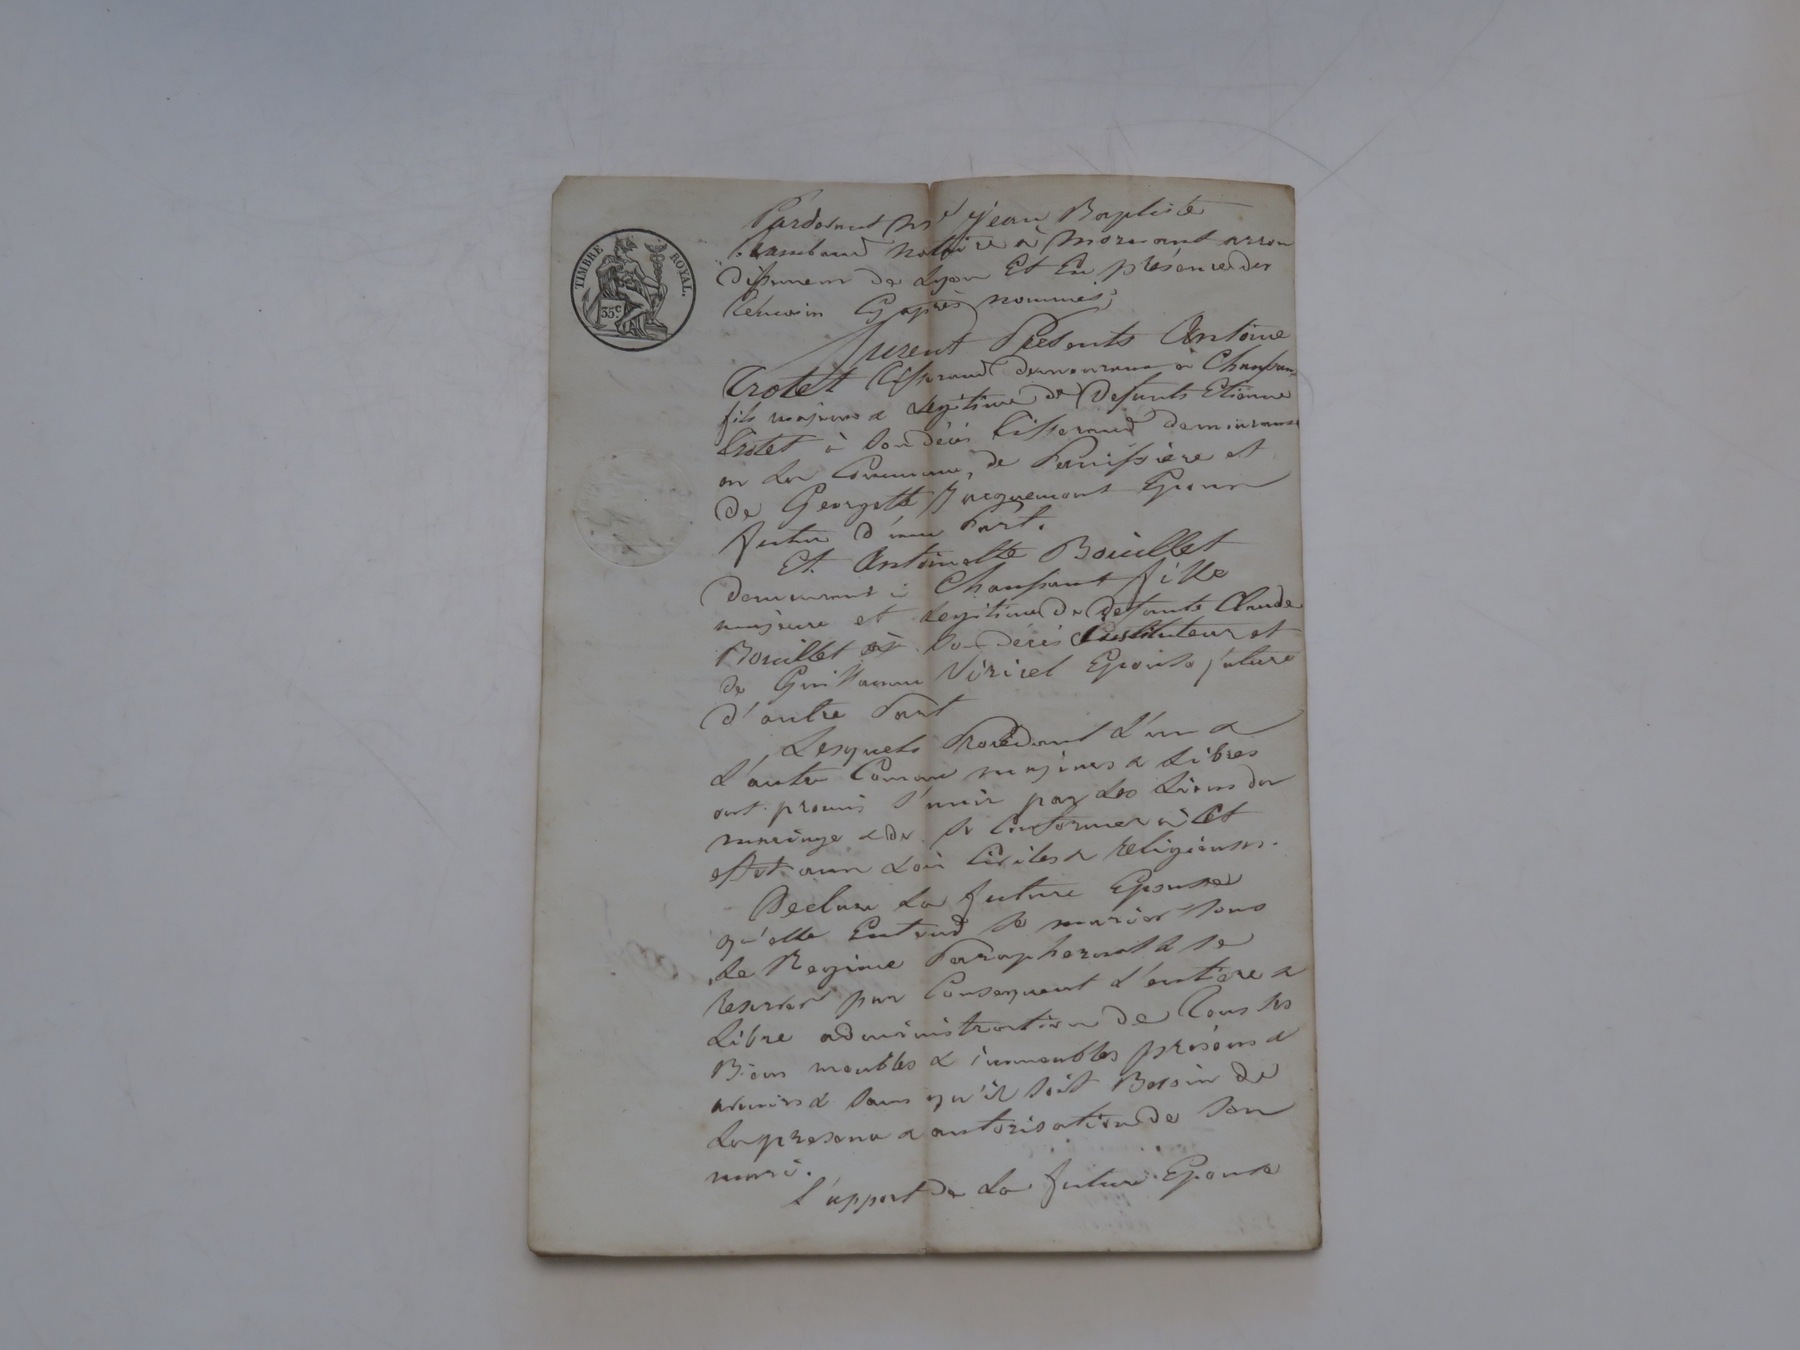 TIMBRE ROYAL.
35c.
Pardevant Me Jean Baptiste
notaire à Mornant arron
dissement de Lyon Et En présence des
témoin Cy après nommés;
furent Présents Antoine
Trotet tisserand demeurant à Chaussan
fils majeur & Legitime de Defunts Etienne
Trotet à Son décès tisserand demeurant
en La Commune de Panissière et
de Georgette Jacquemont Epoux
futur d'une Part.
Et Antoinette Bouillet
demeurant à Chaussant fille
majeure et Legitime de Defunts Claude
Bouillet à Son décès Instituteur et
de Guillaume Viricel Epouse future
d'autre Part
Lesquels Procédant L'un &
L'autre Comme majeurs & Libres
ont promis S'unir par Les Liens du
mariage & de Se Conformer à Cet
effet aux Lois Civiles & religieuses.
Declare La future Epouse
qu'elle Entend Se marier Sous
Le Regime Paraphernal & Se
reserver par Consequent L'entière &
Libre administration de Tous Ses
Biens meubles & immeubles présens &
avenirs & Sans qu'il Soit Besoin de
La presence & autorisation de Son
mari.
L'apport de La future Epouse